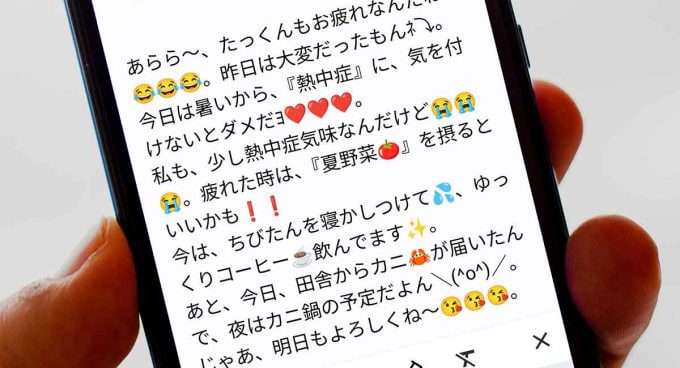 あらら〜、たっくんもお疲れなんだね
😂😂😂。昨日は大変だったもんﾈ⤵。
今日は暑いから、『熱中症』に、気を付
けないとダメだﾖ❤️❤️❤️。
私も、少し熱中症気味なんだけど😭😭
😭。疲れた時は、『夏野菜🍅』を摂ると
いいかも❗❗
今は、ちびたんを寝かしつけて💦、ゆっ
くりコーヒー☕飲んでます✨。
あと、今日、田舎からカニ🦀が届いたん
で、夜はカニ鍋の予定だよん＼(^o^)／。
じゃあ、明日もよろしくね〜😘😘😘。